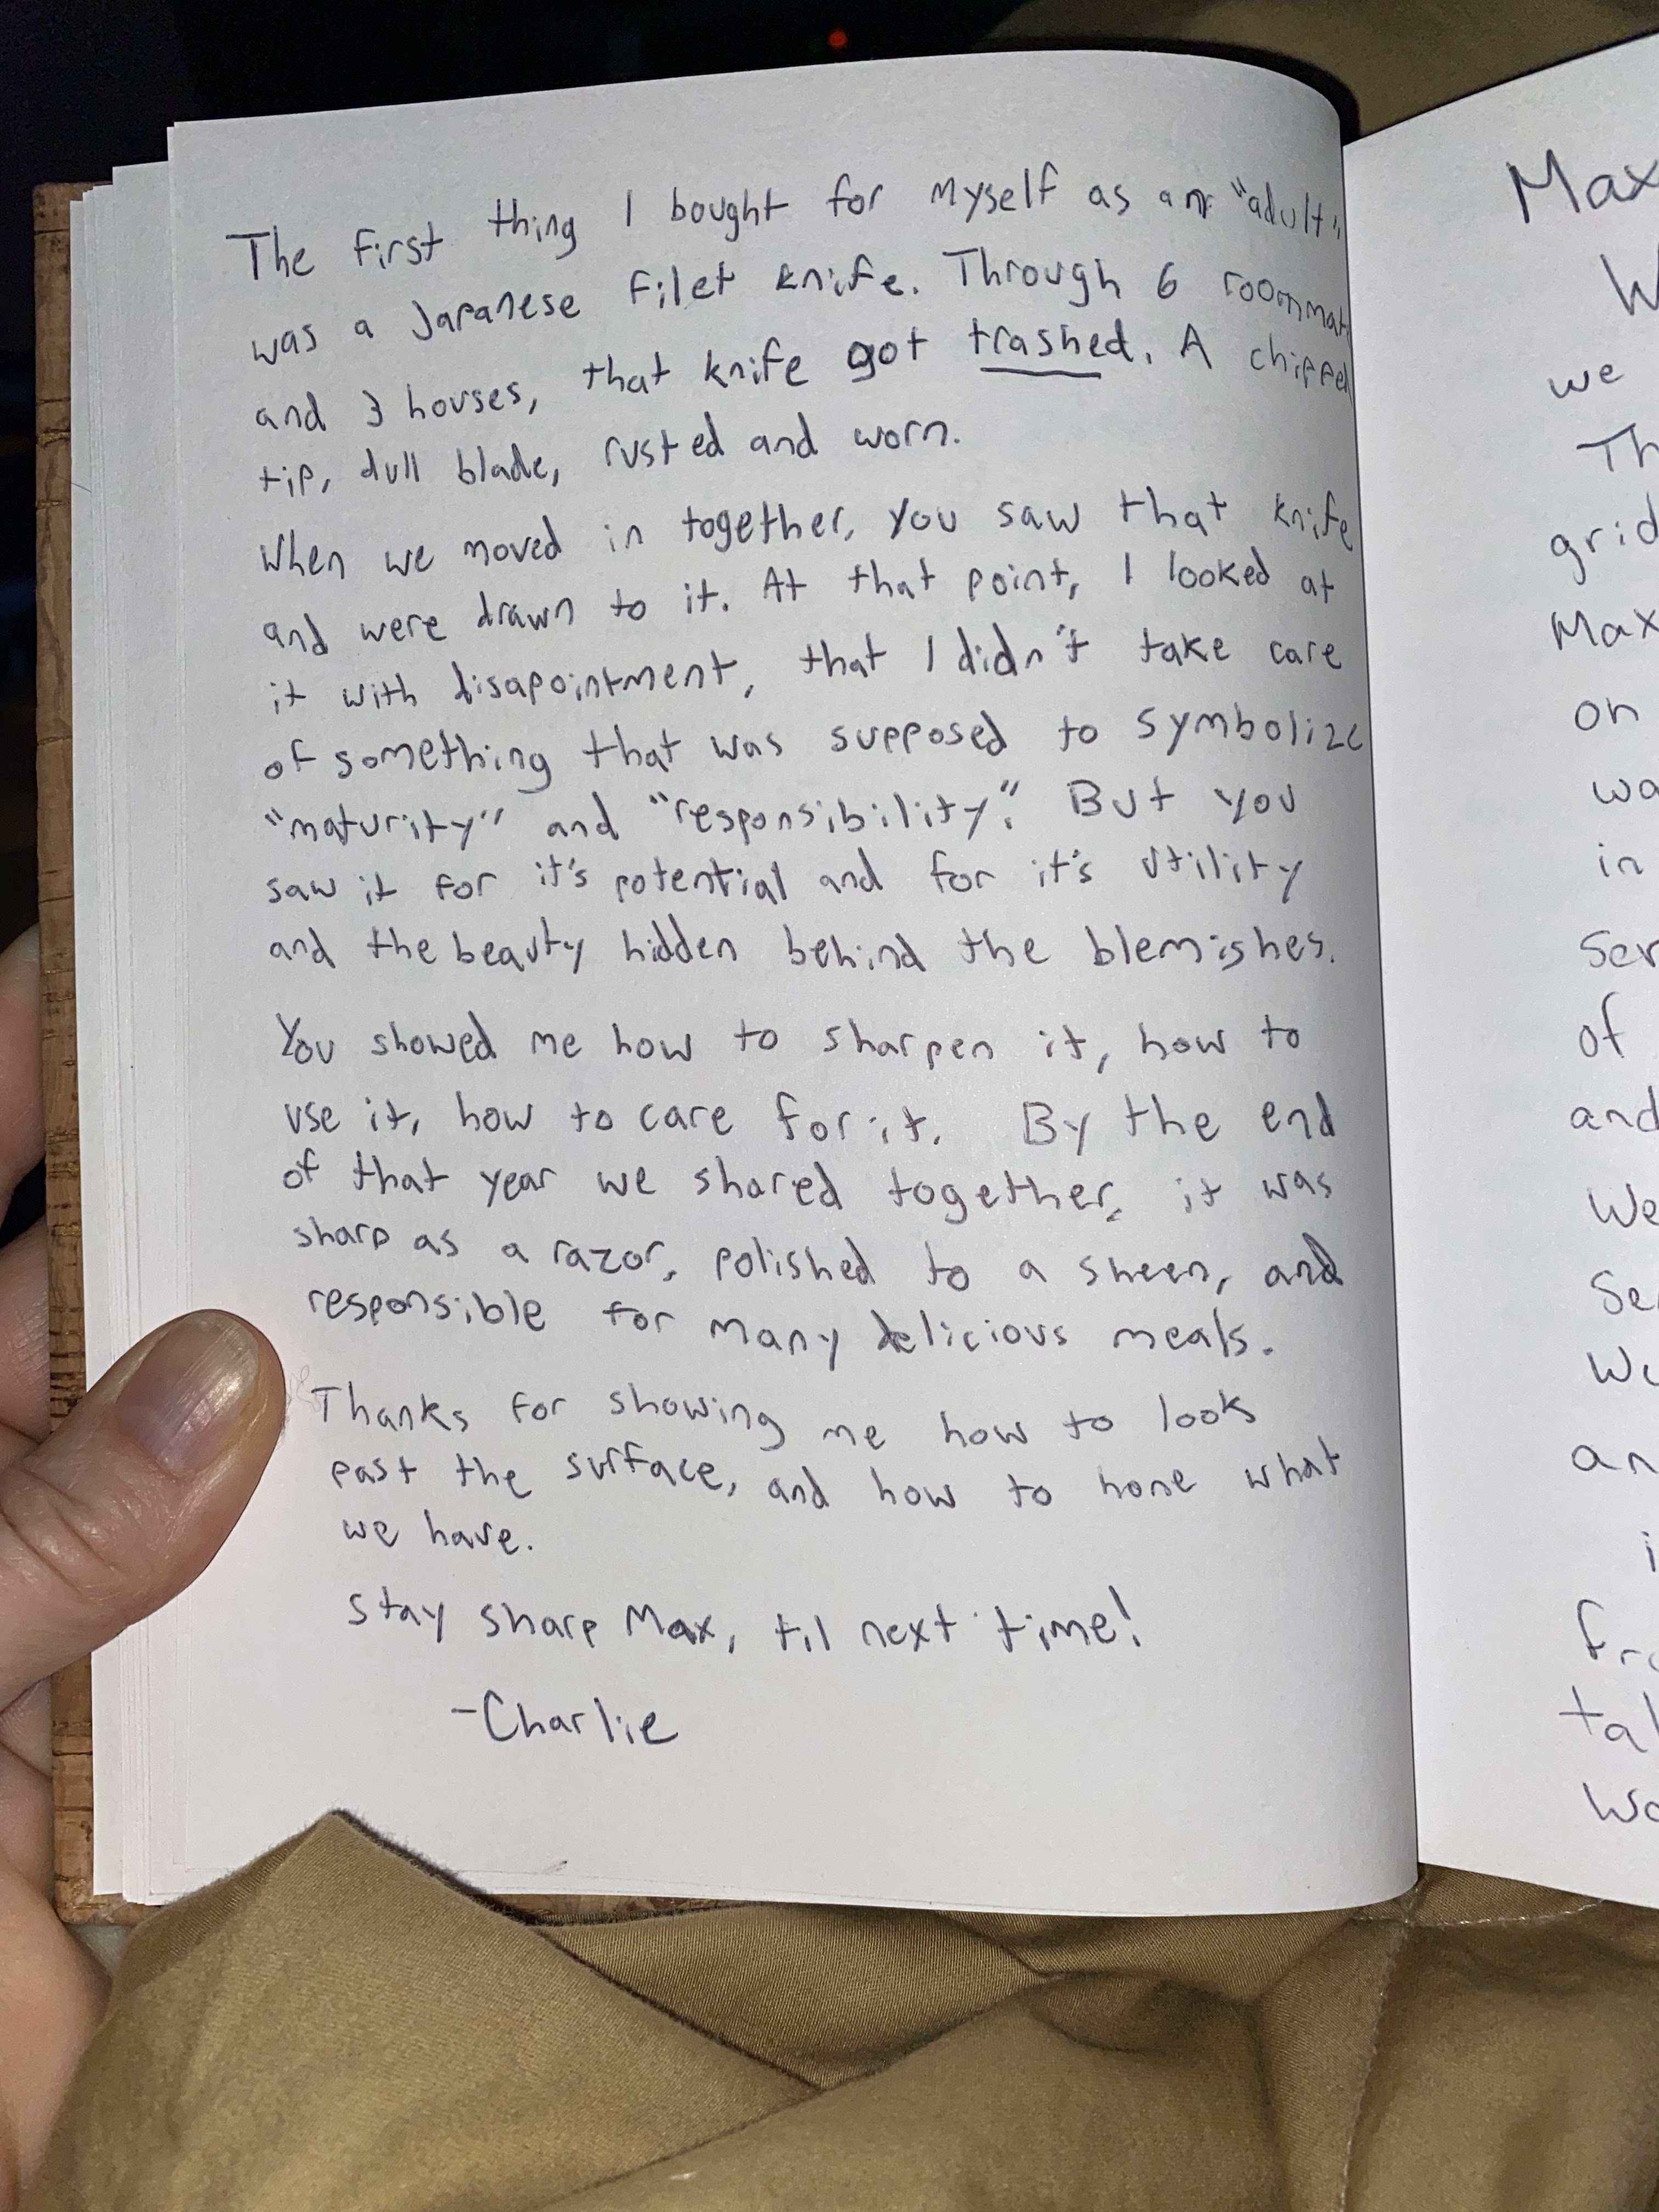 The first thing I bought for myself as an "adult"
was a Japanese filet knife. Through 6 roommat
and 3 houses, that knife got trashed. A chipped
tip, dull blade, rusted and worn.
When we moved in together, you saw that knife
and were drawn to it. At that point, I looked at
it with disapointment, that I didn't take care
of something that was supposed to symbolize
"maturity" and "responsibility." But you
saw it for it's potential and for it's utility
and the beauty hidden behind the blemishes.
You showed me how to sharpen it, how to
use it, how to care for it. By the end
of that year we shared together, it was
sharp as a razor, polished to a sheen, and
responsible for many delicious meals.
Thanks for showing me how to look
past the surface, and how to hone what
we have.
Stay sharp Max, til next time!
-Charlie
Max
W
we
Th
grid
Max
on
wa
in
Ser
of
and
We
Se
We
an
i
fro
tal
wo